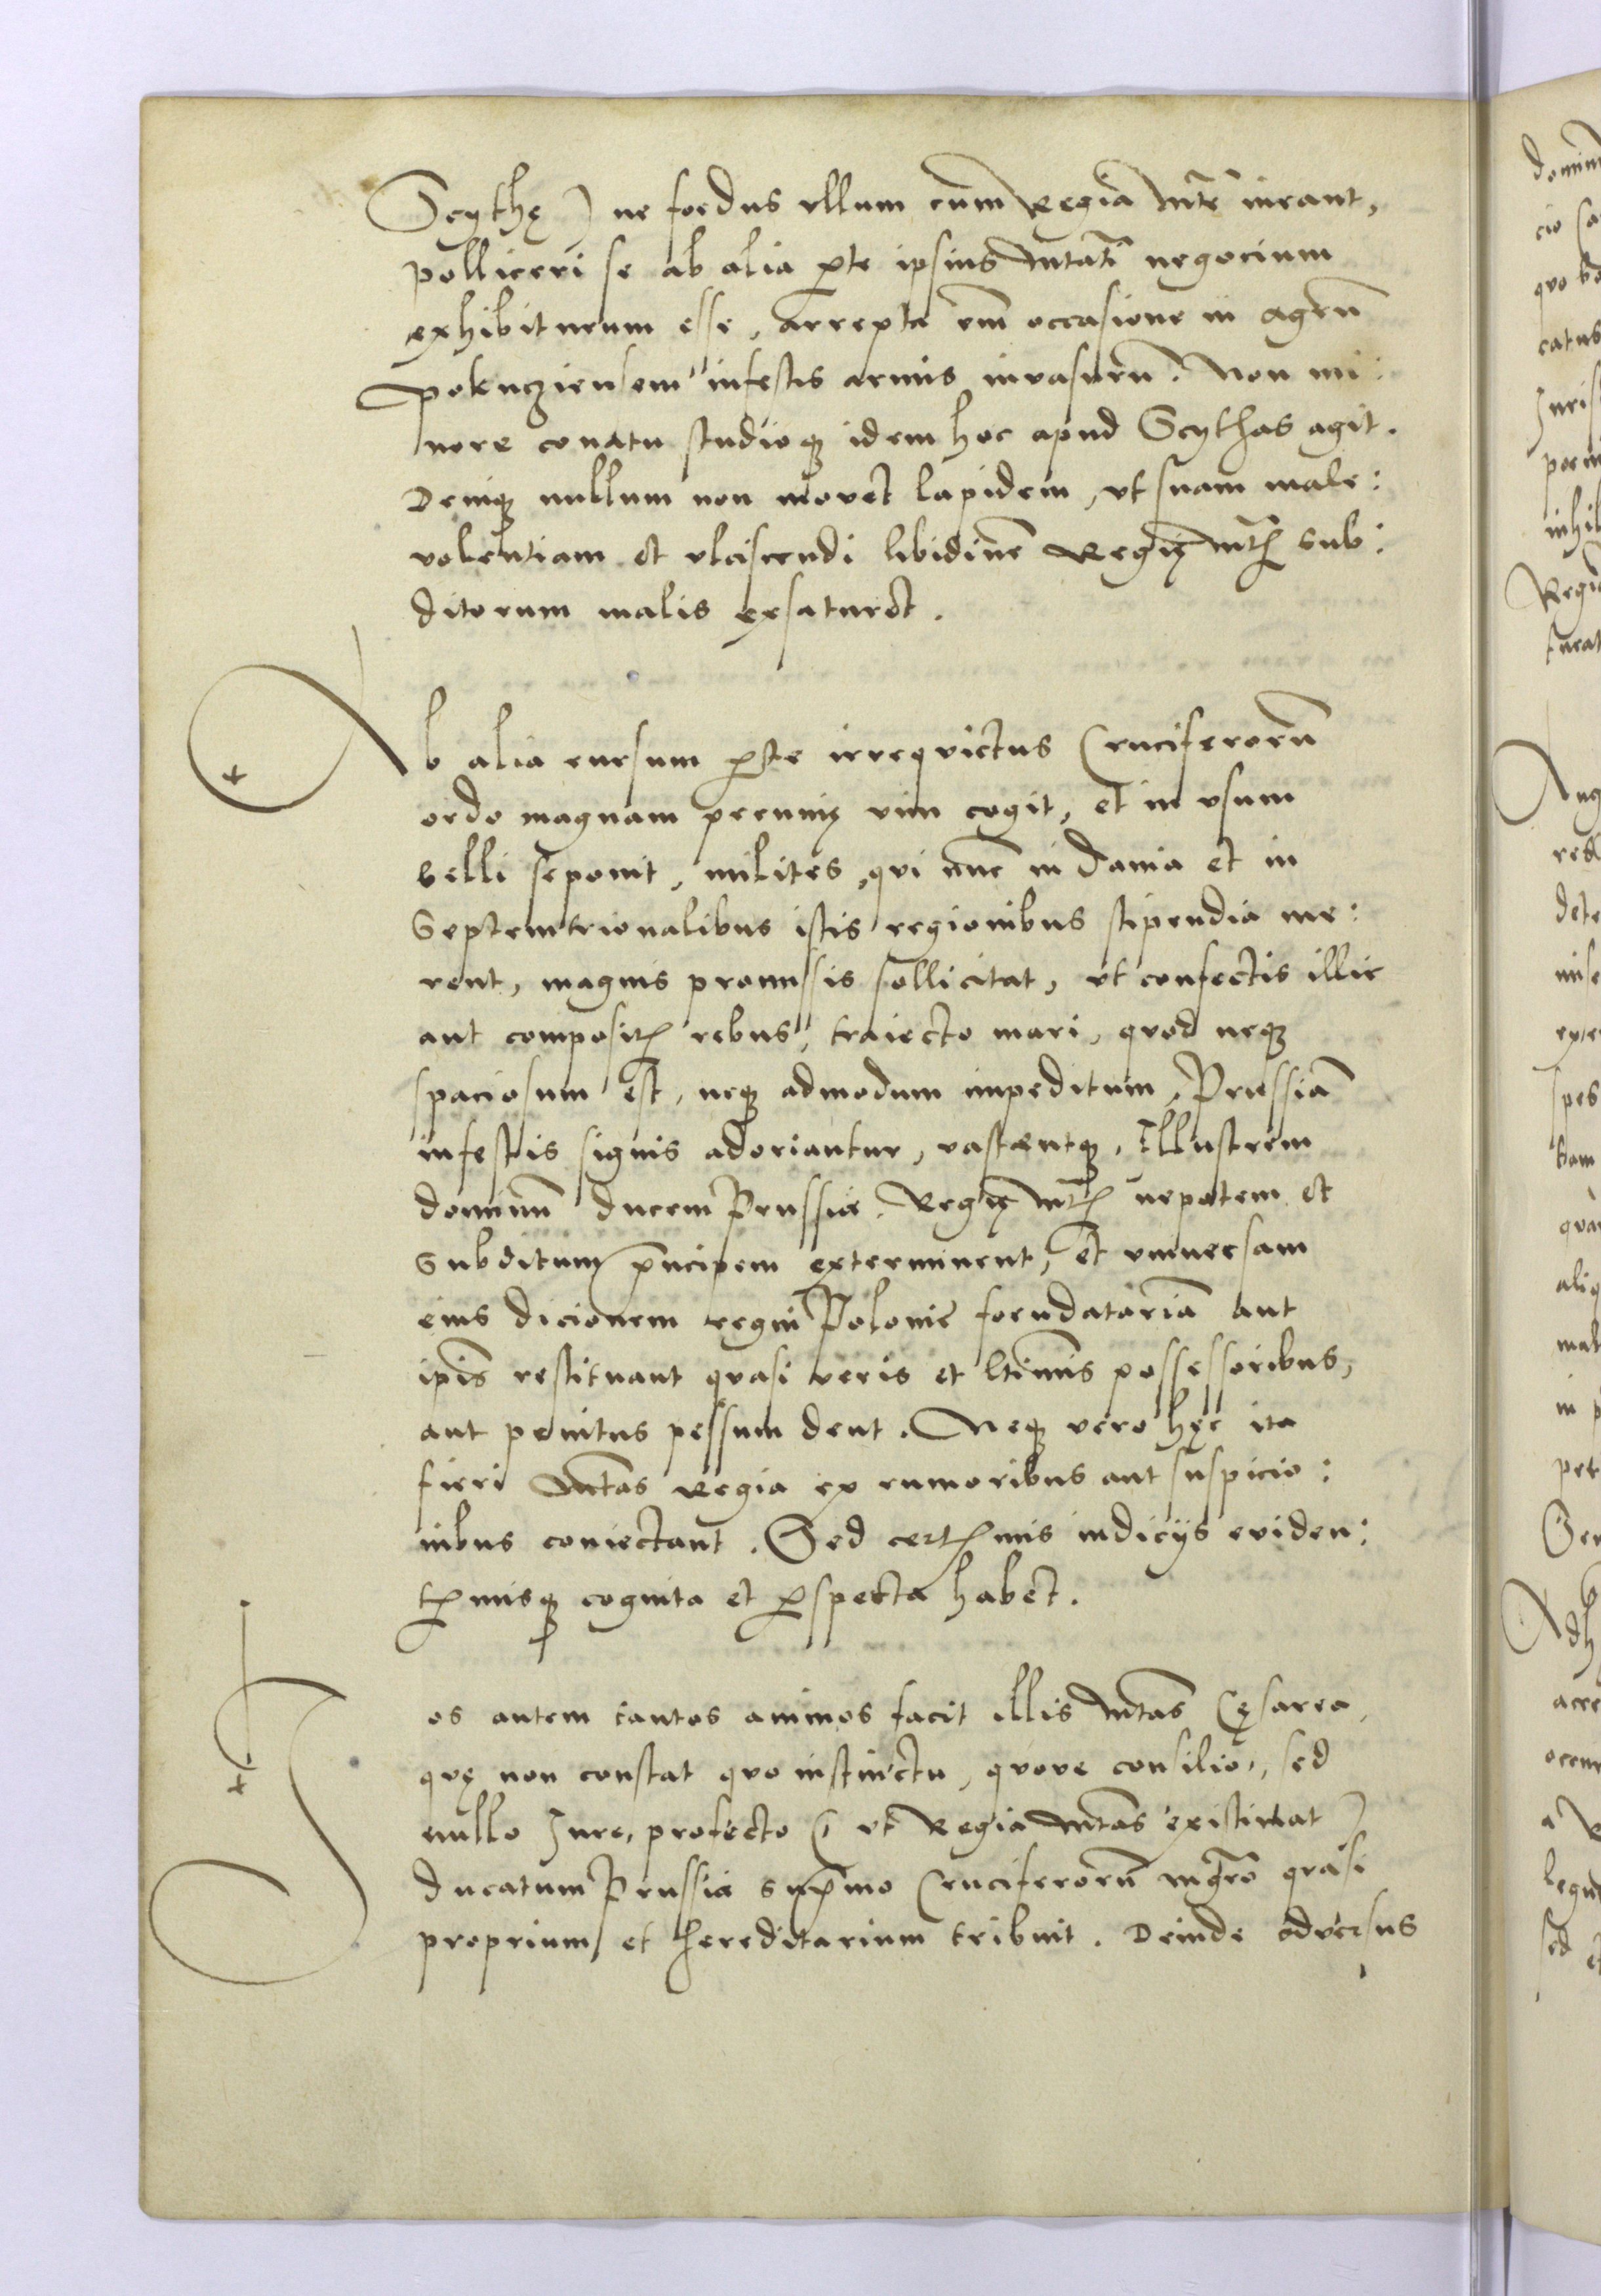 Scythę) ne foedus vllum cum Regia Mte ineant,
polliceri se ab alia pte ipsius Mtati negocium
exhibiturum esse, arrepta em̄ occasione in agrū
pokucziensem infestis armis invasurū. Non mi:
nore conatu studioq idem hoc apud Scythas agit.
Deniq nullum non movet lapidem, vt suam male:
volentiam et vlciscendi libidinē Regię Mtis sub:
ditorum malis exsaturet.
Ab alia rursum pte irrequietus Cruciferorū
ordo magnam pecunię vim cogit, et in vsum
belli seponit, milites, qui nūc in Dania et in
Septemtrionalibus istis regionibus stipendia me:
rent, magnis promissis sollicitat, vt confectis illic
aut compositis rebus, traiecto mari, quod neq
spaciosum est, neq admodum impeditum, Prussiā
infestis signis adoriantur, vastentq, Illustrem
dominū ducem Prussię, Regię Mtis nepotem et
Subditum pncipem exterminent, et vniuersam
eius dicionem regni Polonię foeudatariā aut
ipsis restituant quasi veris et ltimis possessoribus,
aut penitus pessum dent. Neq vero hęc ita
fieri Mtas Regia ex rumoribus aut suspicio:
nibus coniectant. Sed certissimis indicijs eviden:
tissimisq cognita et pspecta habet.
Ios autem tantos animos facit illis Mtas Cęsarea,
quę non constat quo instinctu, quove consilio, sed
nullo Jure, profecto (vt Regia Mtas existimat)
ducatum Prussię supmo Cruciferorū mgro quasi
proprium et hereditarium tribuit. Deinde adversus